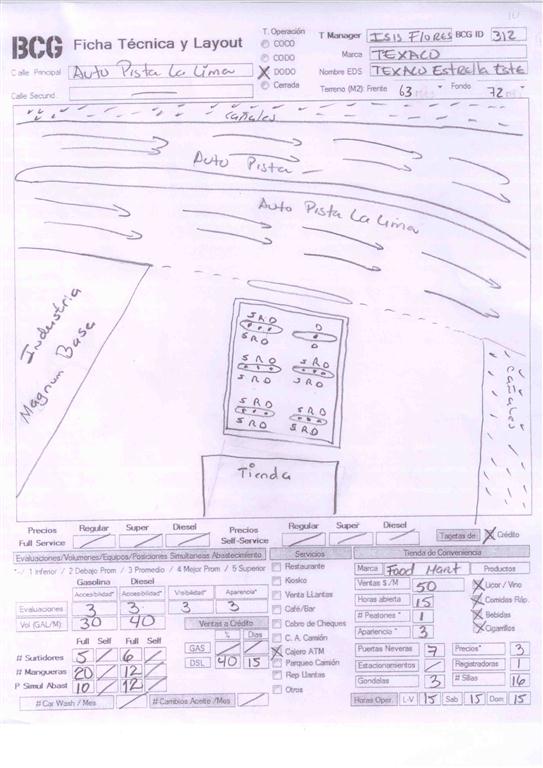 BCG Ficha Técnica y Layout
T. Operación
COCO
CODO
DODO
Cerrada
T Manager ISIS FLORES BCG ID 312
Marca TEXACO
Nombre EDS TEXACO Estrella Este
Terreno (M2): Frente 63 Fondo 72
Calle Principal Auto Pista La Lima
Calle Secund.
Cañales
Auto Pista
Auto Pista La Lima
Industria
Magnum Base
S R D
S R D
D
D
S R D
S R D
S R D
S R D
S R D
S R D
S R D
S R D
Cañales
Tienda
Precios Full Service
Regular Super Diesel
Precios Self-Service
Regular Super Diesel
Tarjetas de Crédito
Evaluaciones/Volumenes/Equipos/Posiciones Simultaneas Abastecimiento
*-/ 1 Inferior / 2 Debajo Prom / 3 Promedio / 4 Mejor Prom / 5 Superior
Gasolina Diesel
Accesibilidad* Accesibilidad* Visibilidad* Aparencia*
Evaluaciones 3 3 3 3
Vol (GAL/M) 30 40
Ventas a Crédito
% Dias
GAS
DSL 40 15
Full Self Full Self
# Surtidores 5 6
# Mangueras 20 12
P Simul Abast 10 12
# Car Wash / Mes
# Cambios Aceite /Mes
Servicios
Restaurante
Kiosko
Venta LLantas
Café/Bar
Cobro de Cheques
C. A. Camión
Cajero ATM
Parqueo Camión
Rep Llantas
Otros
Tienda de Conveniencia
Marca Food Mart Productos
Ventas $/M 50
Horas abierta 15
# Peatones * 1
Apariencia * 3
Licor / Vino
Comidas Ráp.
Bebidas
Cigarrillos
Puertas Neveras 7
Precios* 3
Estacionamientos
Registradoras 1
Gondolas 3
# Sillas 16
Horas Oper. L-V 15 Sab 15 Dom 15